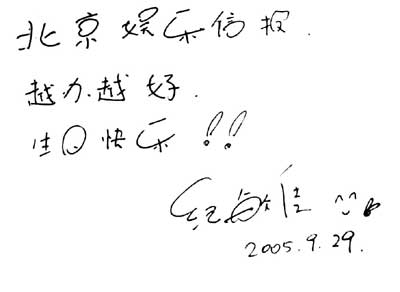 北京娱乐信报.
越办越好.
生日快乐!!
纪敏佳
2005.9.29.